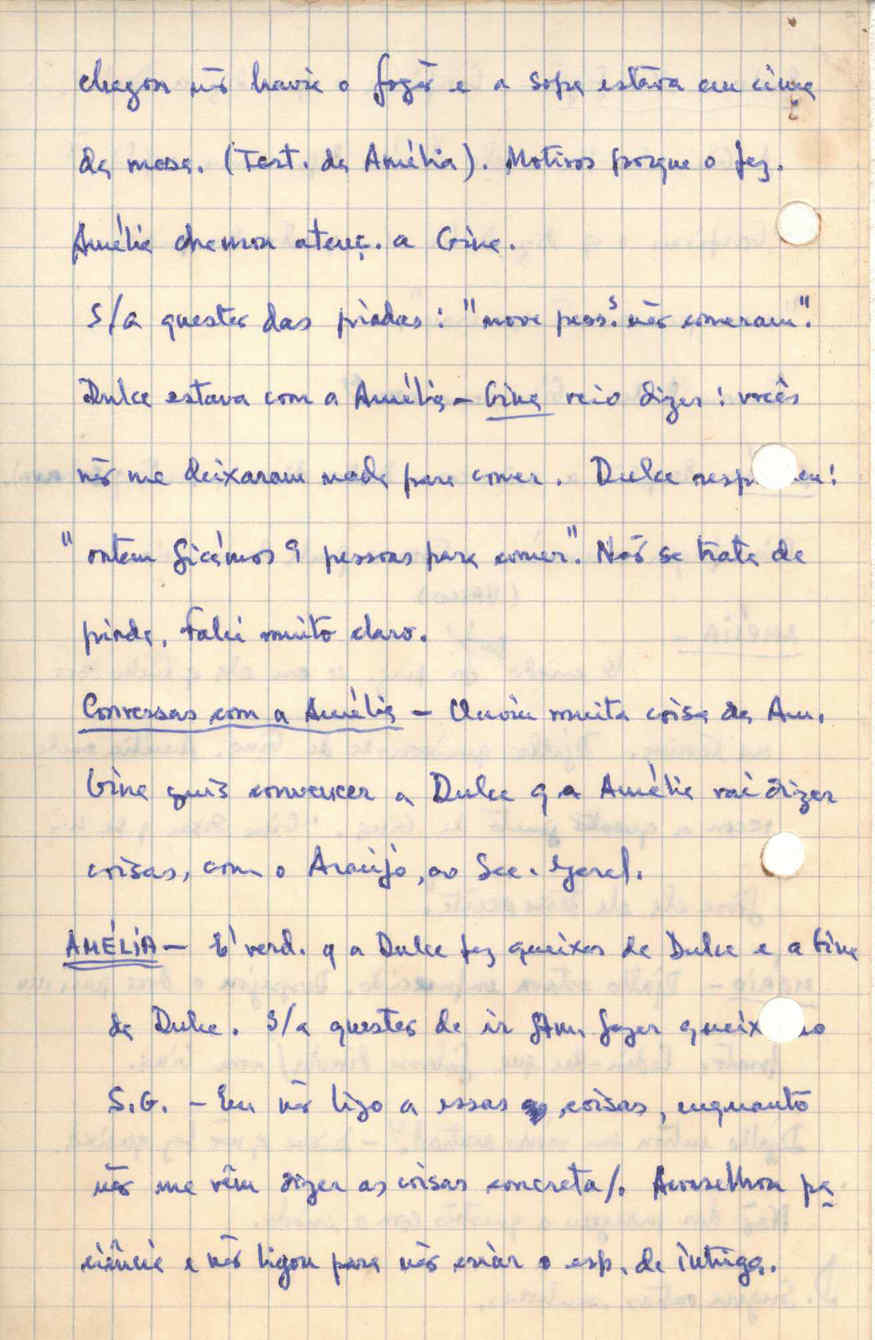 chegou não havia o fogão e a sopa estava em cima
da mesa. (Test. da Amélia). Motivos porque o fez.
Amélia chamou atenç. a Gina.
S/a questão das piadas: "nove pess.s não comeram".
Dulce estava com a Amélia – Gina veio dizer: vocês
não me deixaram nada para comer. Dulce resp eu:
"ontem ficámos 9 pessoas para comer". Não se trata de
piada, falei muito claro.
Conversas com a Amélia – Ouviu muita coisa da Am.
Gina quis convencer a Dulce q a Amélia vai dizer
coisas, com o Araújo, ao Sec. Geral.
AMÉLIA – É verd. q a Dulce fez queixas de Dulce e a Gina
da Dulce. S/a questão de ir Am. fazer queix ao
S.G. – Eu não ligo a essas coisas, enquanto
não me vêm dizer as coisas concreta/. Aconselhou pa
ciência e não ligou para não criar o esp. de intriga.